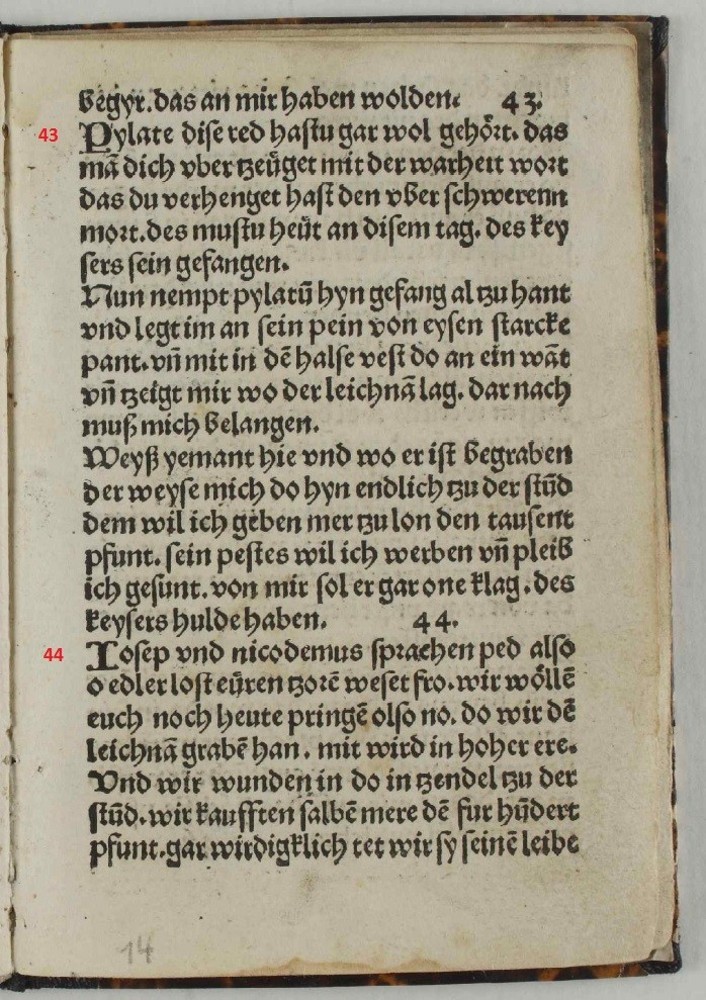 begyr. das an mir haben wolden. 43.
43 Pylate dise red hastu gar wol gehört. das
mā dich vber tzeüget mit der warheit wort
das du verhenget hast den vber schwerenn
mort. des mustu heüt an disem tag. des key
sers sein gefangen.
Nun nempt pylatū hyn gefang al tzu hant
vnd legt im an sein pein von eysen starcke
pant. vn̄ mit in dē halse vest do an ein wāt
vn̄ tzeigt mir wo der leichnā lag. dar nach
muß mich belangen.
Weyß yemant hie vnd wo er ist begraben
der weyse mich do hyn endlich tzu der stūd
dem wil ich geben mer tzu lon den tausent
pfunt. sein pestes wil ich werben vn̄ pleib
ich gesunt. von mir sol er gar one klag. des
keysers hulde haben. 44.
44 Iosep vnd nicodemus sprachen ped also
o edler lost eüren tzorē weset fro. wir wöllē
euch noch heute pringē olso no. do wir dē
leichnā grabē han. mit wird in hoher ere.
Vnd wir wunden in do in tzendel tzu der
stūd. wir kaufften salbē mere dē fur hūdert
pfunt. gar wirdigklich tet wir sy seinē leibe
14